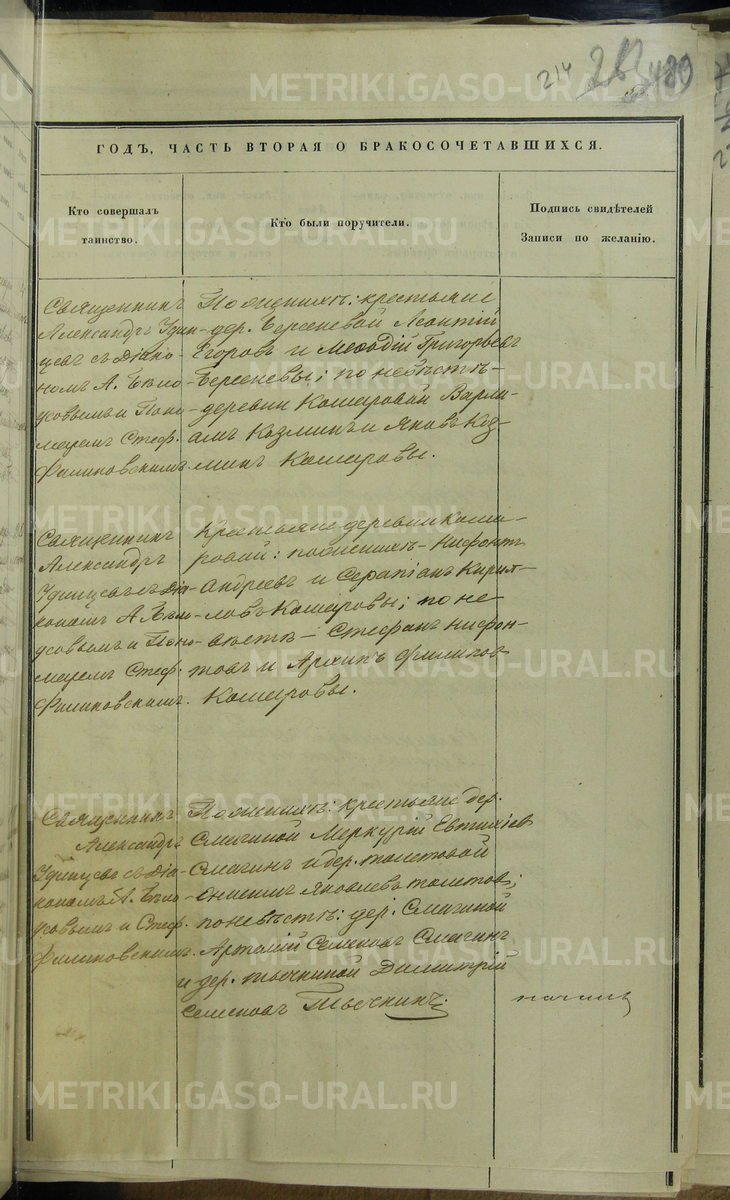 214
489
ГОДЪ, ЧАСТЬ ВТОРАЯ О БРАКОСОЧЕТАВШИХСЯ.
Кто совершалъ
таинство.
Кто были поручители.
Подпись свидѣтелей
Записи по желанію.
Священникъ
Александръ Удин-
цевъ съ Діако-
номъ А. Бѣло-
усовымъ и Поно-
маремъ Стеф.
Филиновскимъ.
По женихѣ: крестьяне
дер. Берсеневой Леонтій
Егоровъ и Меѳодій Григорьевъ
Берсеневы; по невѣстѣ-
деревни Комаровой Варла-
амъ Козминъ и Яковъ Коз-
минъ Комаровы.
Священникъ
Александръ
Удинцевъ съ Діа-
кономъ А Бѣло-
усовымъ и Поно-
маремъ Стеф.
Филиновскимъ.
Крестьяне деревни Кома-
ровой: по женихѣ- Нифонтъ
Андреевъ и Серапіонъ Кирил-
ловъ Комаровы; по не
вѣстѣ- Стефанъ Нифон-
товъ и Архипъ Филипов
Комаровы.
Священникъ
Александръ
Удинцевъ съ Діа-
кономъ А. Бѣло-
усовымъ и Стеф.
Филиновскимъ.
По женихѣ: крестьяне дер.
Смагиной Меркурій Евтихіев
Смагинъ и дер.
Онисимъ Яковлевъ
по невѣстѣ: дер. Смагиной
Артемій Семеновъ Смагинъ
и дер. Димитрій
Семеновъ
METRIKI.GASO-URAL.RU